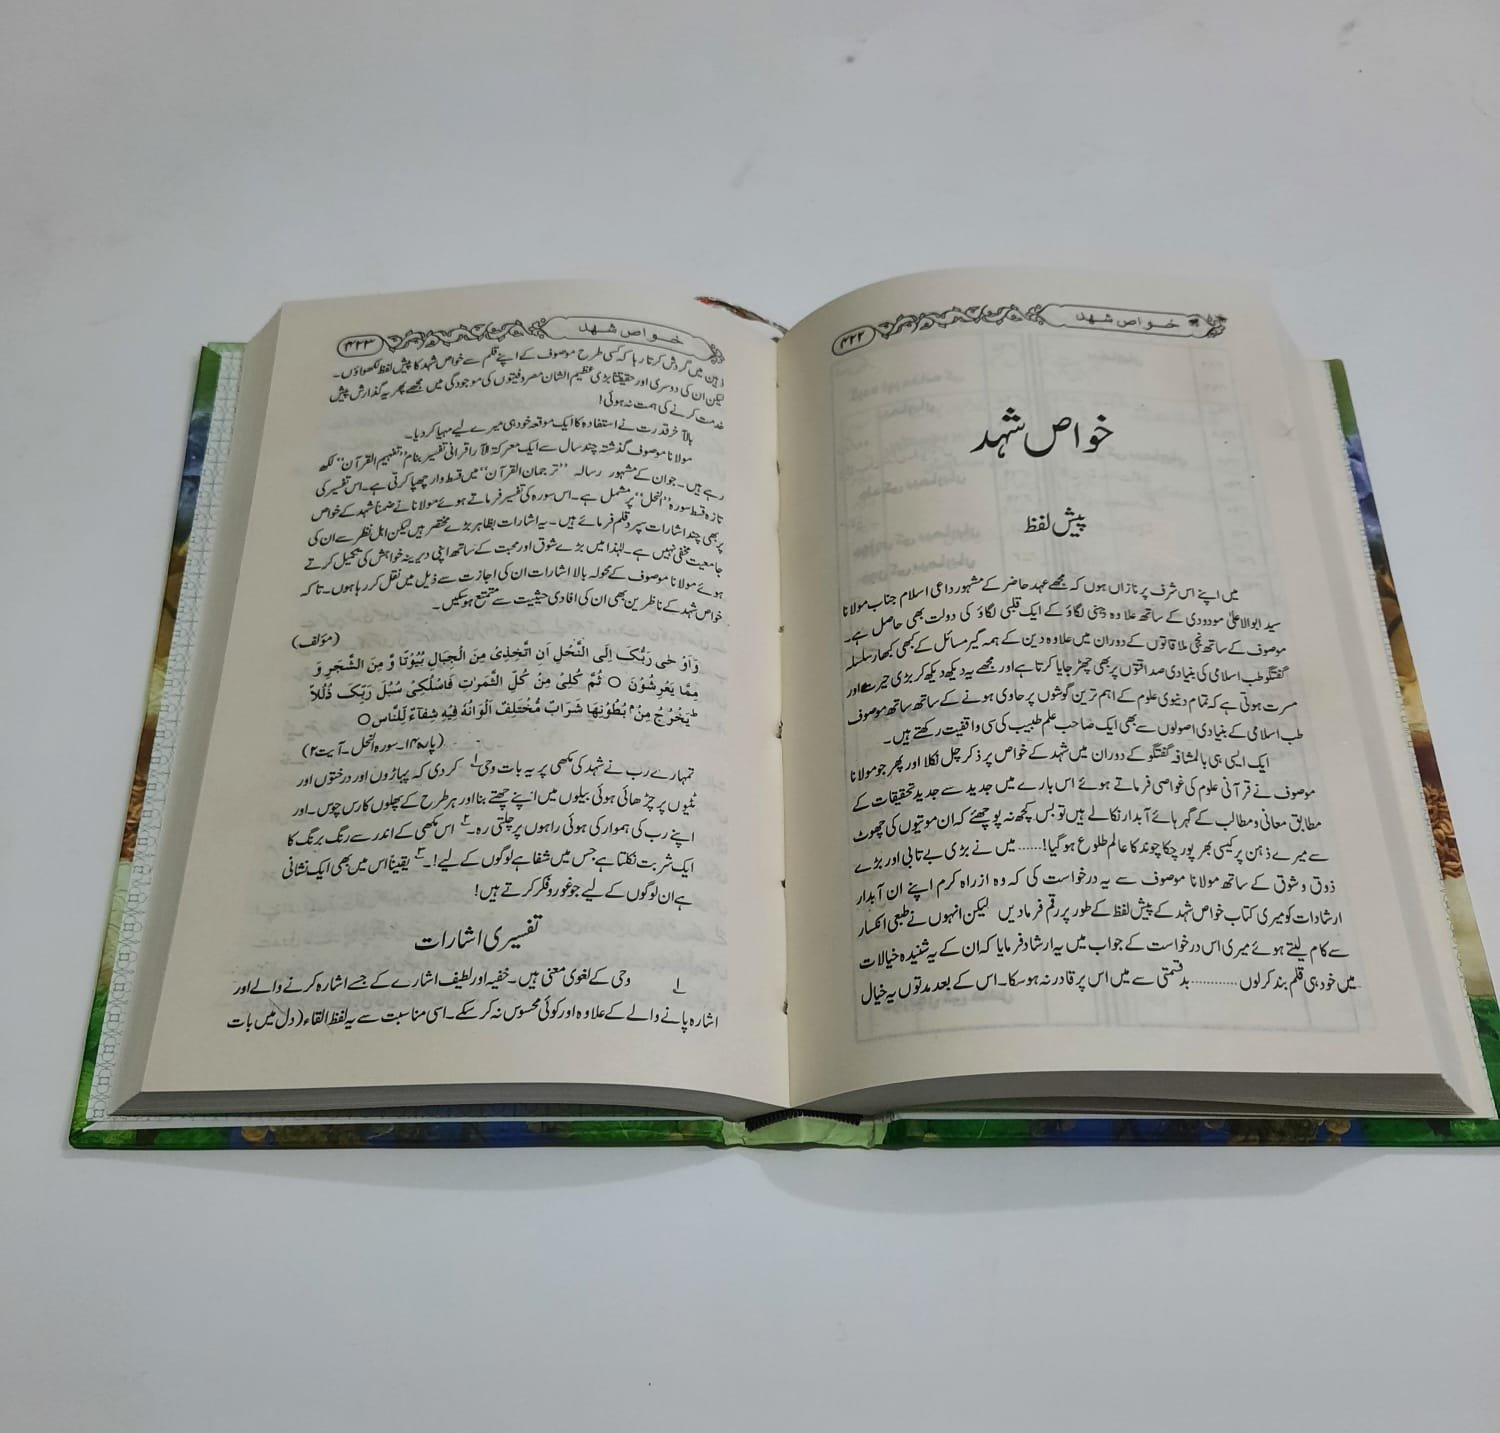 خواص شہد
۴۲۲
خواص شہد
پیش لفظ
میں اپنے اس شرف پر نازاں ہوں کہ مجھے عہد حاضر کے مشہور داعی اسلام جناب مولانا
سید ابوالاعلیٰ مودودی کے ساتھ علاوہ دینی لگاؤ کے ایک قلبی لگاؤ کی دولت بھی حاصل ہے۔
موصوف کے ساتھ نجی ملاقاتوں کے دوران میں علاوہ دین کے ہمہ گیر مسائل کے کبھی کبھار سلسلہ
گفتگو طب اسلامی کی بنیادی صداقتوں پر بھی چھڑ جایا کرتا ہے اور مجھے یہ دیکھ دیکھ کر بڑی حیرت اور
مسرت ہوتی ہے کہ تمام دنیوی علوم کے اہم ترین گوشوں پر حاوی ہونے کے ساتھ ساتھ موصوف
طب اسلامی کے بنیادی اصولوں سے بھی ایک صاحب علم طبیب کی سی واقفیت رکھتے ہیں۔
ایک ایسی ہی بالمشافہ گفتگو کے دوران میں شہد کے خواص پر ذکر چل نکلا اور پھر جو مولانا
موصوف نے قرآنی علوم کی غواصی فرماتے ہوئے اس بارے میں جدید سے جدید تحقیقات کے
مطابق معانی و مطالب کے گہر ہائے آبدار نکالے ہیں تو بس کچھ نہ پوچھئے کہ ان موتیوں کی چھوٹ
سے میرے ذہن پر کیسی بھرپور چکا چوند کا عالم طلوع ہو گیا!...... میں نے بڑی بے تابی اور بڑے
ذوق و شوق کے ساتھ مولانا موصوف سے یہ درخواست کی کہ وہ از راہ کرم اپنے ان آبدار
ارشادات کو میری کتاب خواص شہد کے پیش لفظ کے طور پر رقم فرما دیں لیکن انہوں نے طبعی انکسار
سے کام لیتے ہوئے میری اس درخواست کے جواب میں یہ ارشاد فرمایا کہ ان کے یہ شنیدہ خیالات
میں خود ہی قلم بند کر لوں ............ بدقسمتی سے میں اس پر قادر نہ ہو سکا۔ اس کے بعد مدتوں یہ خیال
خواص شہد
۴۲۳
ذہن میں گردش کرتا رہا کہ کسی طرح موصوف کے اپنے قلم سے خواص شہد کا پیش لفظ لکھواؤں۔
لیکن ان کی دوسری اور حقیقتاً بڑی عظیم الشان مصروفیتوں کی موجودگی میں مجھے پھر یہ گذارش پیش
خدمت کرنے کی ہمت نہ ہوئی!
بالآخر قدرت نے استفادہ کا ایک موقعہ خود ہی میرے لیے مہیا کر دیا۔
مولانا موصوف گذشتہ چند سال سے ایک معرکۃ الآرا قرآنی تفسیر بنام ’’تفہیم القرآن‘‘ لکھ
رہے ہیں۔ جو ان کے مشہور رسالہ ’’ترجمان القرآن‘‘ میں قسط وار چھپا کرتی ہے۔ اس تفسیر کی
تازہ قسط سورہ ’’النحل‘‘ پر مشتمل ہے۔ اس سورہ کی تفسیر فرماتے ہوئے مولانا نے ضمناً شہد کے خواص
پر بھی چند اشارات سپرد قلم فرمائے ہیں۔ یہ اشارات بظاہر بڑے مختصر ہیں لیکن اہل نظر سے ان کی
جامعیت مخفی نہیں ہے۔ لہٰذا میں بڑے شوق اور محبت کے ساتھ اپنی دیرینہ خواہش کی تکمیل کرتے
ہوئے مولانا موصوف کے محولہ بالا اشارات ان کی اجازت سے ذیل میں نقل کر رہا ہوں۔ تاکہ
خواص شہد کے ناظرین بھی ان کی افادی حیثیت سے متمتع ہو سکیں۔
(مؤلف)
وَاَوْ حٰى رَبُّكَ اِلَى النَّحْلِ اَنِ اتَّخِذِىْ مِنَ الْجِبَالِ بُيُوْتًا وَّ مِنَ الشَّجَرِ وَ
مِمَّا يَعْرِشُوْنَ ○ ثُمَّ كُلِىْ مِنْ كُلِّ الثَّمَرٰتِ فَاسْلُكِىْ سُبُلَ رَبِّكَ ذُلُلًا
ۭيَخْرُجُ مِنْۢ بُطُوْنِهَا شَرَابٌ مُّخْتَلِفٌ اَلْوَانُهٗ فِيْهِ شِفَآءٌ لِّلنَّاسِ ○
(پارہ ۱۴۔ سورہ النحل۔ آیت ۲)
تمہارے رب نے شہد کی مکھی پر یہ بات وحی ۱ کر دی کہ پہاڑوں اور درختوں اور
ٹٹیوں پر چڑھائی ہوئی بیلوں میں اپنے چھتے بنا اور ہر طرح کے پھلوں کا رس چوس۔ اور
اپنے رب کی ہموار کی ہوئی راہوں پر چلتی رہ۔ ۲ اس مکھی کے اندر سے رنگ برنگ کا
ایک شربت نکلتا ہے جس میں شفا ہے لوگوں کے لیے! ۳۔ یقیناً اس میں بھی ایک نشانی
ہے ان لوگوں کے لیے جو غور و فکر کرتے ہیں!
تفسیری اشارات
۱ وحی کے لغوی معنی ہیں۔ خفیہ اور لطیف اشارے کے جسے اشارہ کرنے والے اور
اشارہ پانے والے کے علاوہ اور کوئی محسوس نہ کر سکے۔ اسی مناسبت سے یہ لفظ القاء (دل میں بات